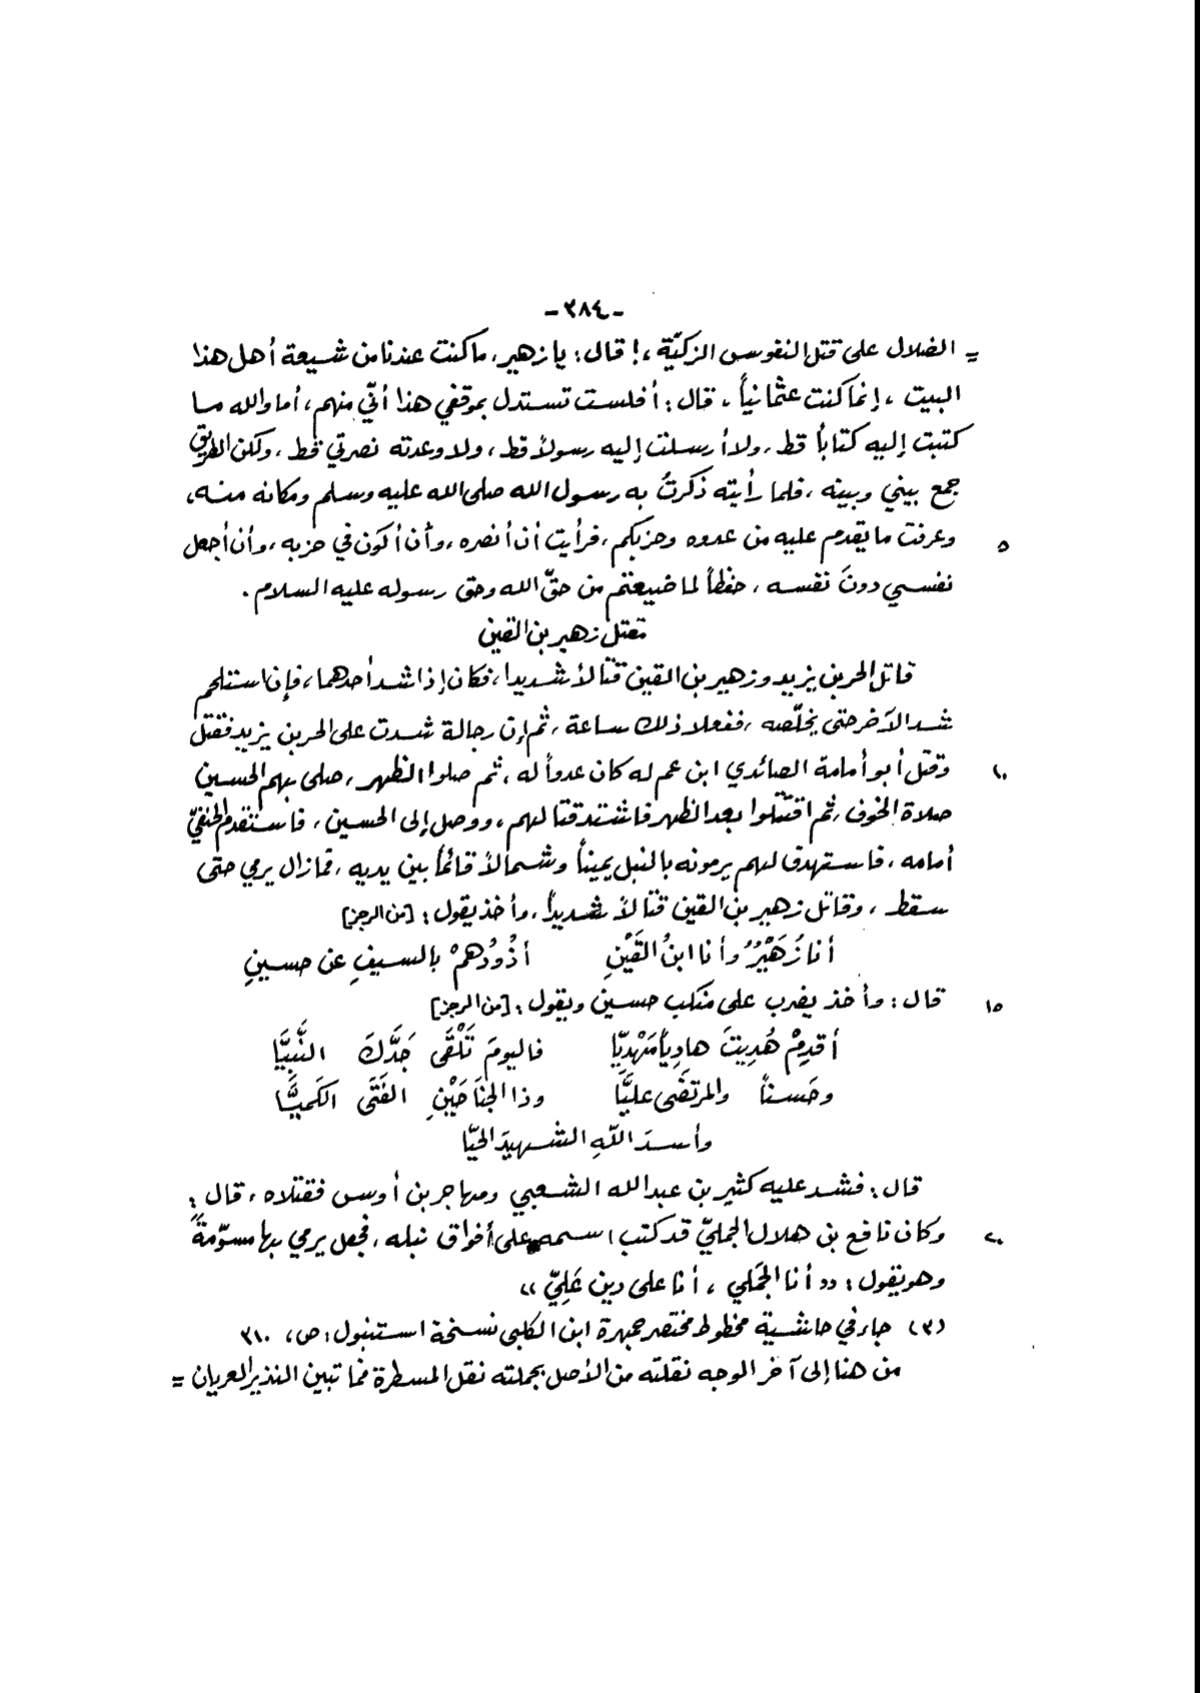 -٣٨٤-
= الضلال على قتل النفوس الزكيّة،! قال: يا زهير، ما كنت عندنا من شيعة أهل هذا
البيت، إنما كنت عثمانياً، قال: أفلست تستدل بموقفي هذا أنّي منهم، أما والله ما
كتبت إليه كتاباً قط، ولا أرسلت إليه رسولاً قط، ولا وعدته نصرتي قط، ولكن الطريق
جمع بيني وبينه، فلما رأيته ذكرتُ به رسول الله صلى الله عليه وسلم ومكانه منه،
٥ وعرفت ما يقدم عليه من عدوه وحزبكم، فرأيت أن أنصره، وأن أكون في حزبه، وأن أجعل
نفسي دونَ نفسه، حفظاً لما ضيعتم من حقّ الله وحق رسوله عليه السلام.
مقتل زهير بن القين
قاتل الحر بن يزيد وزهير بن القين قتالاً شديداً، فكان إذا شد أحدهما، فإن استلحم
شد الآخر حتى يخلّصه، ففعلا ذلك ساعة، ثم إن رجالة شدت على الحر بن يزيد فقتل
١٠ وقتل أبو أمامة الصائدي ابن عم له كان عدواً له، ثم صلوا الظهر، صلى بهم الحسين
صلاة الخوف، ثم اقتتلوا بعد الظهر فاشتد قتالهم، ووصل إلى الحسين، فاستقدم الحنفيّ
أمامه، فاستهدف لهم يرمونه بالنبل يميناً وشمالاً قائماً بين يديه، فما زال يرمي حتى
سقط، وقاتل زهير بن القين قتالاً شديداً، وأخذ يقول: [من الرجز]
أنا زُهَيْرٌ وأنا ابنُ القَيْنِ أذُودُهمْ بالسيفِ عن حسينِ
١٥ قال: وأخذ يضرب على منكب حسين ويقول: [من الرجز]
أقدِمْ هُدِيتَ هادِياً مَهْدِيّا فاليومَ تَلْقَى جَدَّكَ النَّبِيَّا
وحَسناً والمرتضَى عليَّا وذا الجنَاحَيْنِ الفَتَى الكَميَّا
وأسدَ اللّهِ الشهيدَ الحيّا
قال: فشد عليه كثير بن عبد الله الشعبي ومهاجر بن أوس فقتلاه، قال:
٢٠ وكان نافع بن هلال الجمليّ قد كتب اسمه على أفواق نبله، فجعل يرمي بها مسوّمةً
وهو يقول: «أنا الجَملي، أنا على دين عَلِيّ»
(٣) جاء في حاشية مخطوط مختصر جمهرة ابن الكلبي نسخة استنبول: ص، ٣١٠
من هنا إلى آخر الوجه نقلته من الأصل بجملته نقل المسطرة فما تبين النذير العريان =